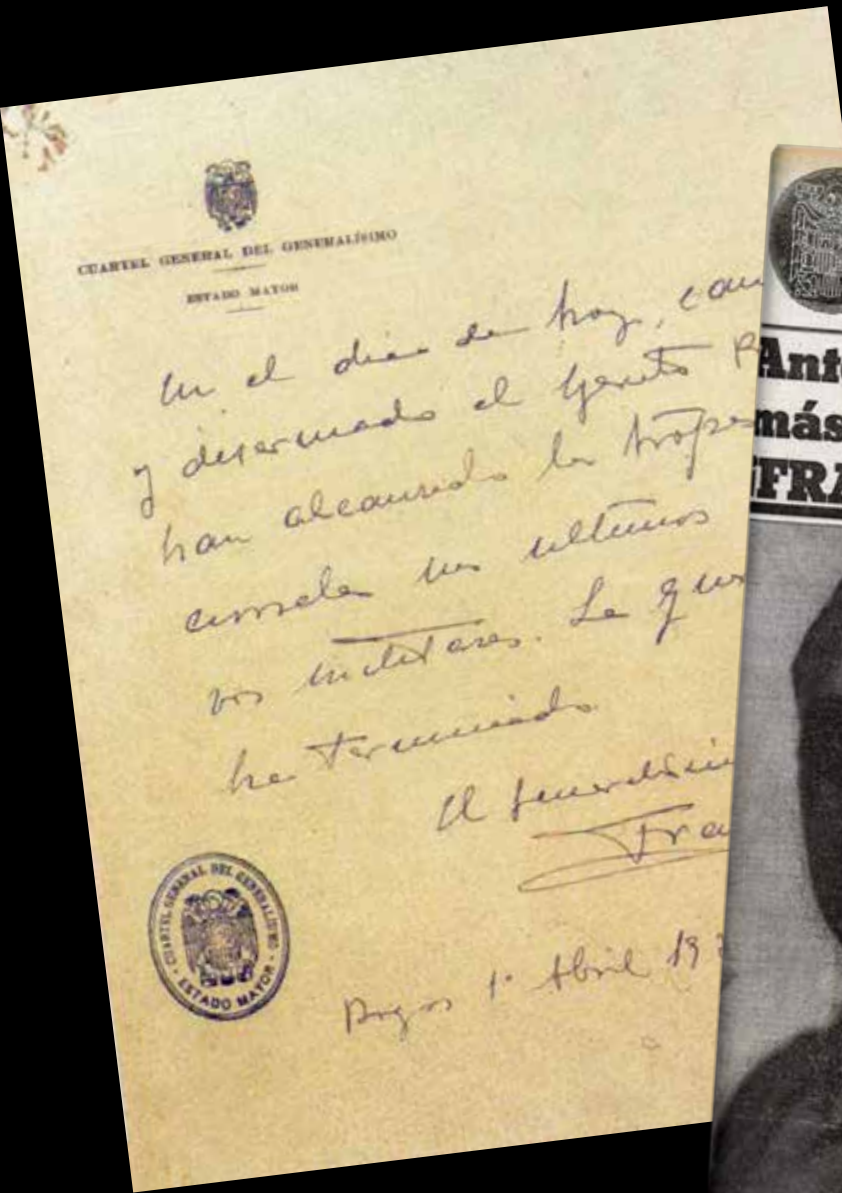 CUARTEL GENERAL DEL GENERALÍSIMO
ESTADO MAYOR
En el dia de hoy, cau
y desarmado el Ejercito R
han alcanzado las tropas
sus ultimos
vos militares. La gue
ha terminado
El Generalísim
Fra
Burgos 1º Abril 19
CUARTEL GENERAL DEL GENERALÍSIMO
ESTADO MAYOR
Ant
más
FRA